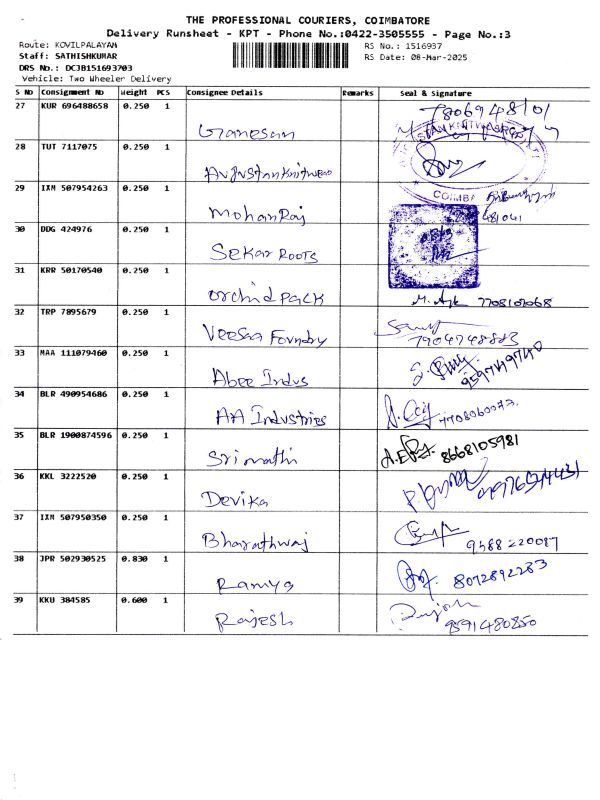 THE PROFESSIONAL COURIERS, COIMBATORE
Delivery Runsheet - KPT - Phone No.:0422-3505555 - Page No.:3
Route: KOVILPALAYAM RS No.: 1516937
Staff: SATHISHKUMAR RS Date: 08-Mar-2025
DRS No.: DCJB151693703
Vehicle: Two Wheeler Delivery
S No Consignment No Weight PCS Consignee Details Remarks Seal & Signature
27 KUR 696488658 0.250 1 Ganesan
28 TUT 7117075 0.250 1
COIMBA
29 IXM 507954263 0.250 1 MohanRaj
30 DDG 424976 0.250 1 Sekar Roots
31 KRR 50170540 0.250 1 Orchid pack
32 TRP 7895679 0.250 1 Veesaa Foundry 7904748883
33 MAA 111079460 0.250 1 Abee Indus 959749740
34 BLR 490954686 0.250 1 AA Industries
35 BLR 1900874596 0.250 1 Srimathi 8668105981
36 KKL 3222520 0.250 1 Devika
37 IXM 507950350 0.250 1 Bharathwaj
38 JPR 502930525 0.830 1 Ramya 8072892283
39 KKU 384585 0.600 1 Rajesh 9591480850